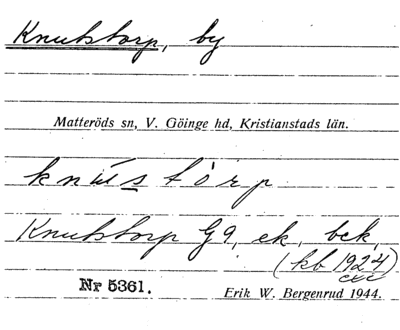 Knutstorp, by
Matteröds sn, V. Göinge hd, Kristianstads län.
knūstòrp
Knutstorp G9, ek, bek,
(kb 1924)
Nr 5361.
Erik W. Bergenrud 1944.